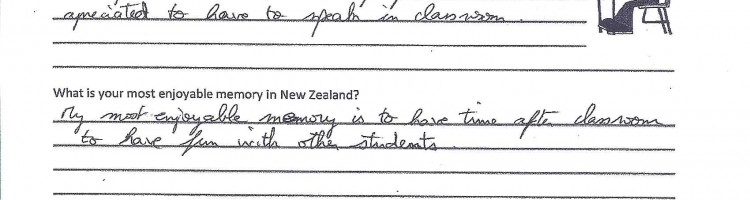 apreciated to have to speak in classroom.
What is your most enjoyable memory in New Zealand?
My most enjoyable memory is to have time after classroom
to have fun with other students.